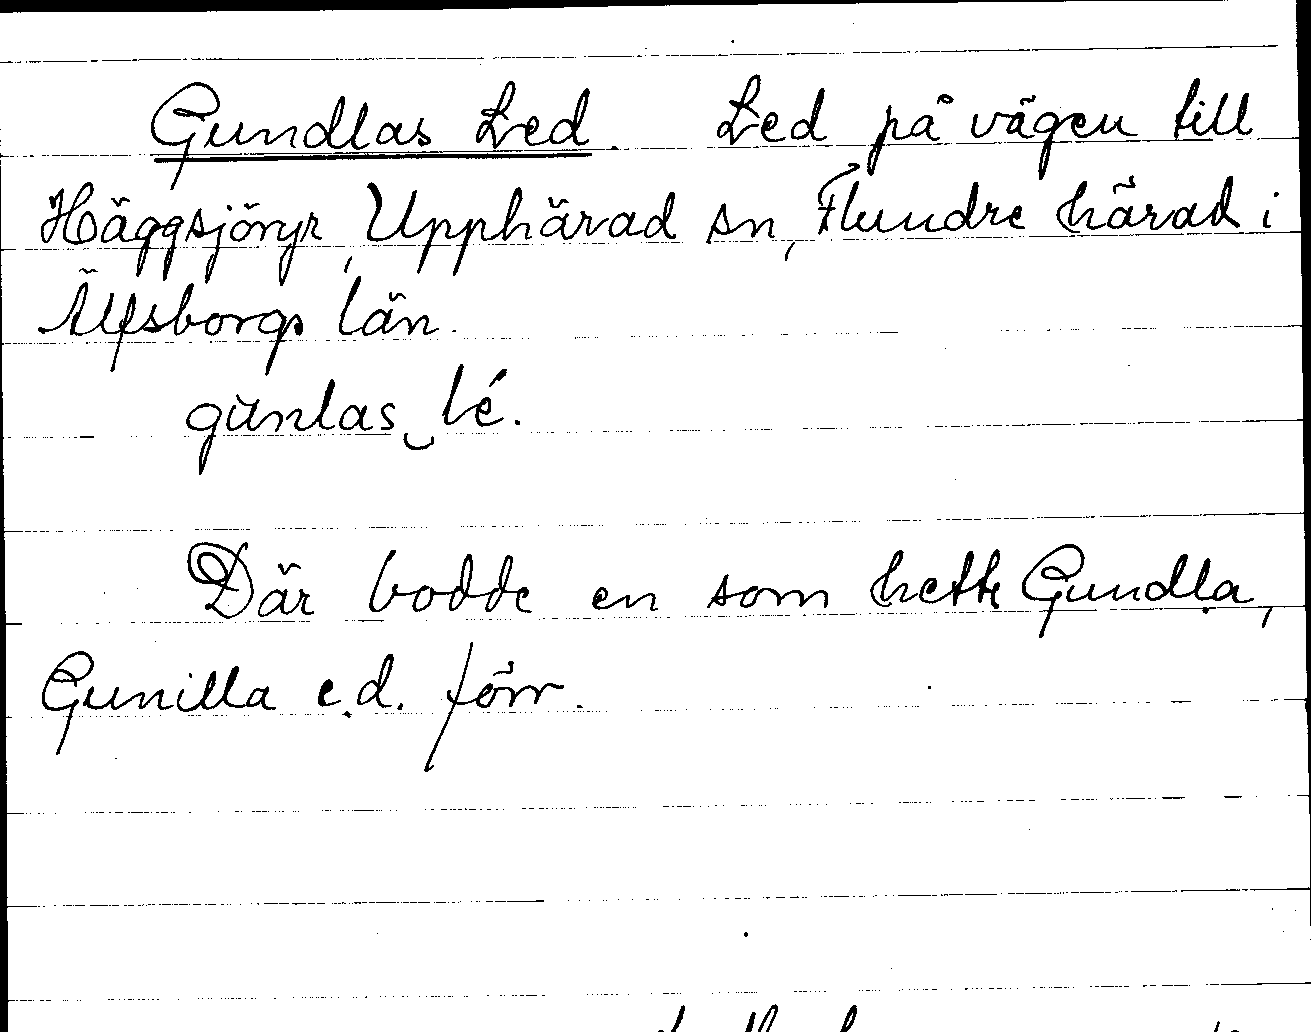 Gundlas Led. Led på vägen till
Häggsjöryr, Upphärad sn, Flundre härad i
Älfsborgs län.
gŭnlas‿lé.
Där bodde en som hette Gundla,
Gunilla e.d. förr.